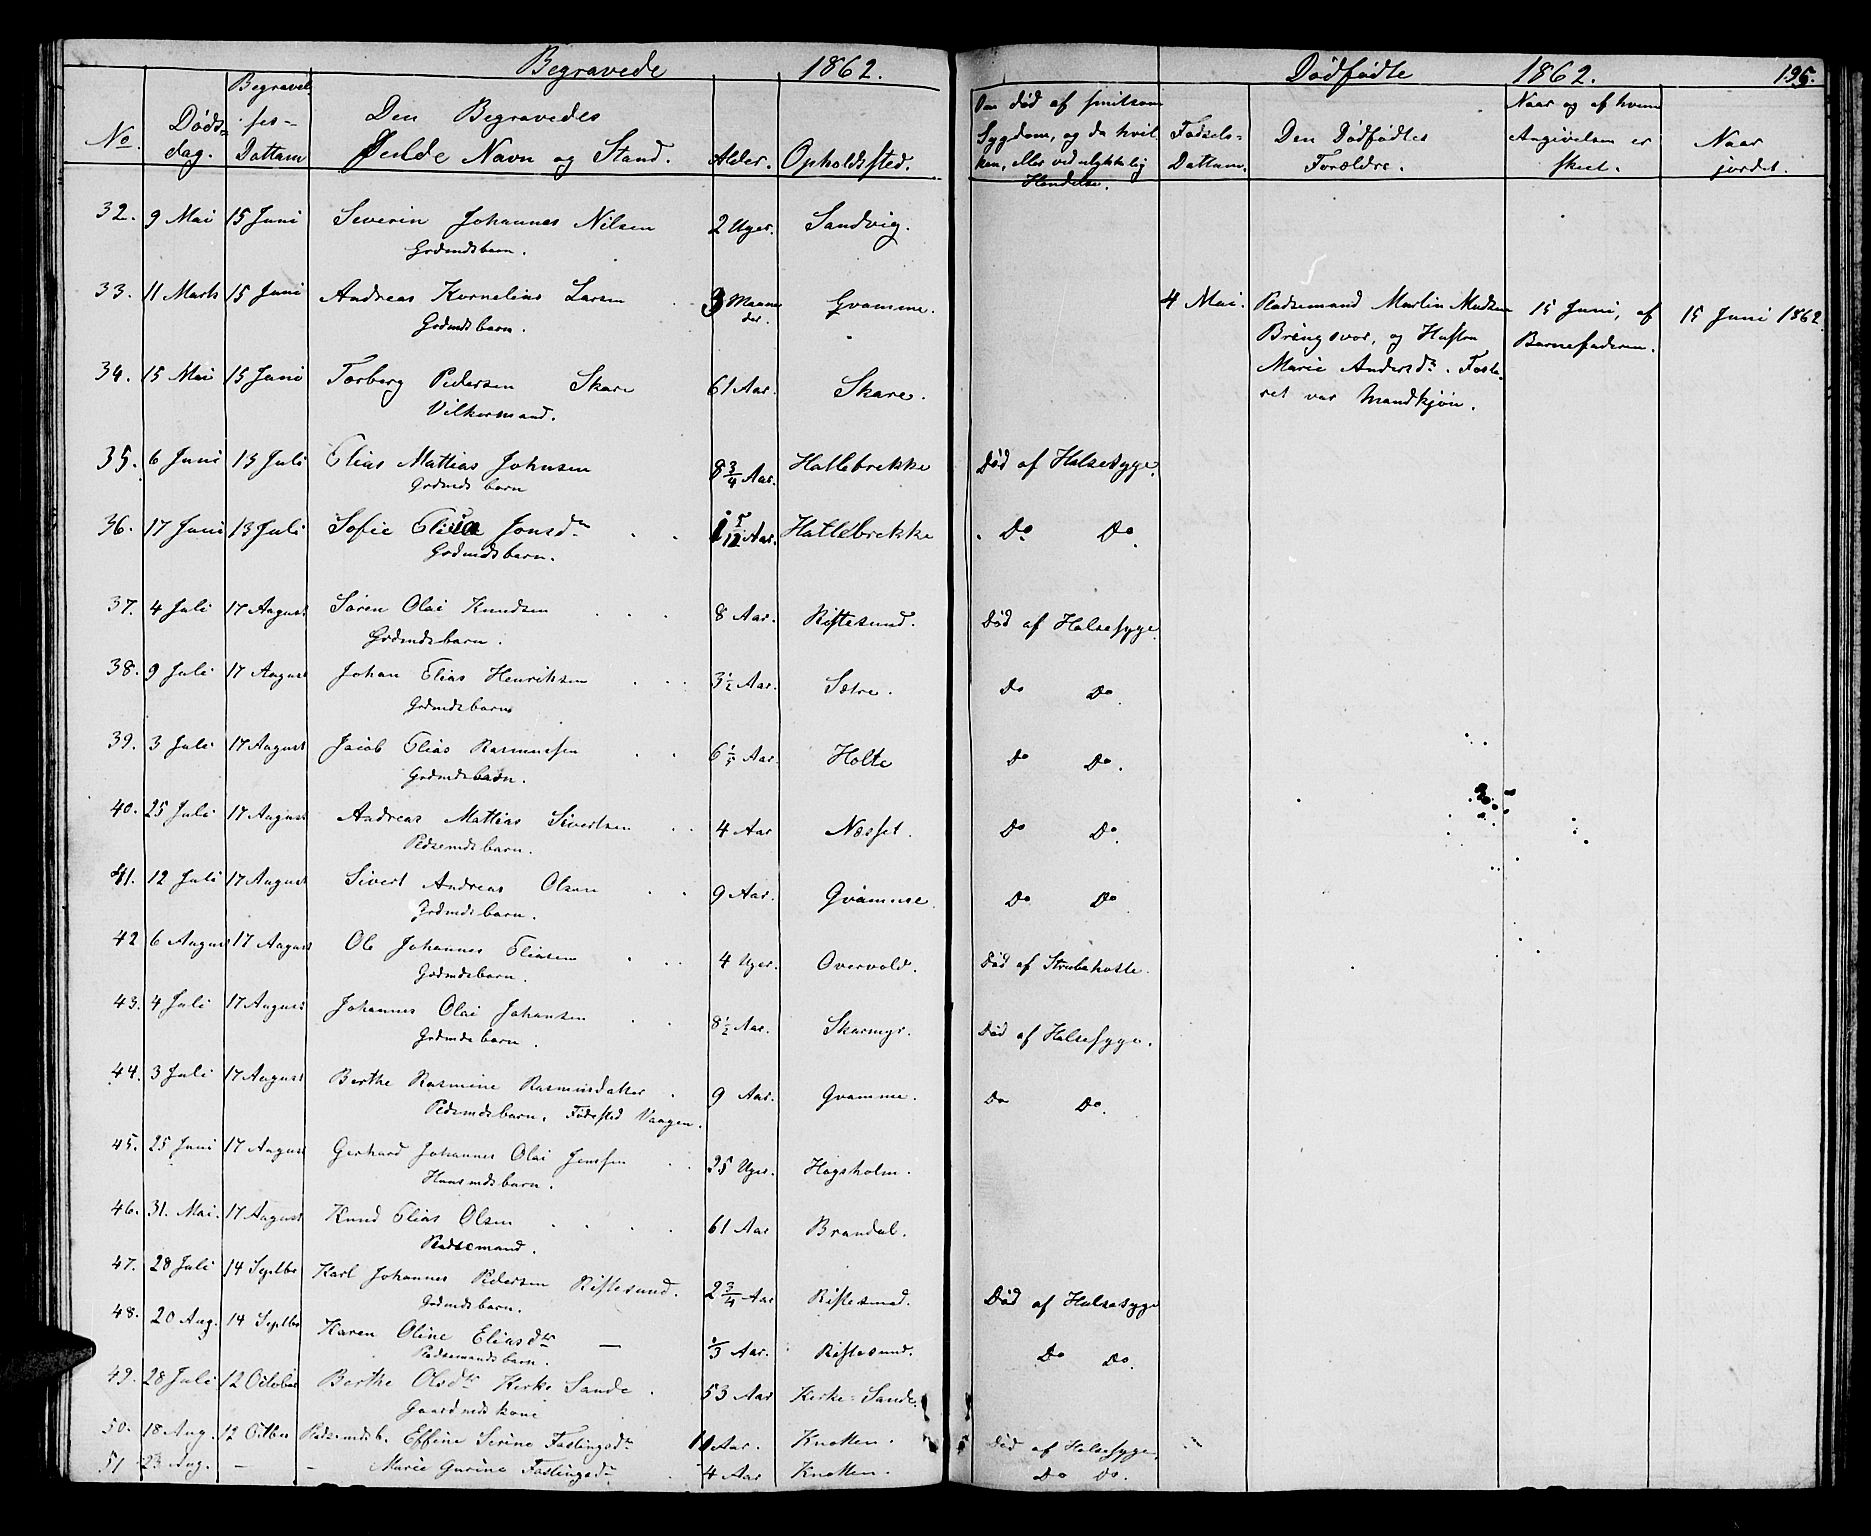 Begravede 1862.
No. Dødsdag. Begravelses-Dattum Den Begravedes Fulde Navn og Stand. Alder. Opholdssted.
32. 9 Mai 15 Juni Severin Johannes Nilsen 2 Uger. Sandvig.
Grdmdsbarn.
33. 11 Marts 15 Juni Andreas Kornelius Larsen 3 Maaneder. Gvamme.
Grdmdsbarn.
34. 15 Mai 15 Juni Torberg Pedersen Skare 61 Aar. Skare.
Vilkormand.
35. 6 Juni 13 Juli Elias Mattias Johnsen 8 3/4 Aar. Hallebrekke Død af Halsesyge.
Grdmdsbarn
36. 17 Juni 13 Juli Sofie Jonsdr 1 5/12 Aar. Hallebrekke Do Do.
Grdmdsbarn.
37. 4 Juli 17 August Søren Olai Knudsen 8 Aar. Riftesund. Død af Halsesyge.
Grdmdsbarn.
38. 9 Juli 17 August Johan Elias Henriksen 3 1/2 Aar. Sætre. Do Do.
Grdmdsbarn
39. 3 Juli 17 August Jacob Elias Rasmussen Aar. Holte Do Do.
Grdmdsbarn.
40. 25 Juli 17 August Andreas Mattias Sivertsen 4 Aar Næsset. Do Do.
Pdsemdsbarn.
41. 12 Juli 17 August Sivert Andreas Olsen 9 Aar. Gvamme. Do Do
Grdmdsbarn.
42 6 August 17 August Ole Johannes Eliasen 4 Uger. Overvold. Død af Strubehoste.
Grdmdsbarn.
43. 4 Juli 17 August Johannes Olai Johansen 8 1/2 Aar. Skarmyr. Død af Halsesyge.
Grdmdsbarn.
44. 3 Juli 17 August Berthe Rasmine Rasmusdatter 9 Aar. Gvamme. Do Do.
Pdsemdsbarn. Fødested Vaagen.
45. 25 Juni 17 August Gerhard Johannes Olai Jenssen 25 Uger. Hogsholm.
Huusmdsbarn.
46. 31. Mai. 17 August Knud Elias Olsen 61 Aar Brandal.
Pladsemand.
47. 28 Juli 14 Septbr Karl Johannes Pedersen Riftesund. 2 3/4 Aar Riftesund. Død af Halsesyge
Grdmdsbarn.
48. 20 Aug. 14 Septbr Karen Oline Eliasdtr — Aar. Riftesund. Do Do.
Pladsemandsbarn.
49. 28 Juli 12 October Berthe Olsdtr Kirke Sande. 53 Aar Kirke-Sande.
Gaardmdskone
50. 18 Aug. 12 Octber Pladsemdsb. Effine Serine Fastingsdr 11 Aar. Knotten. Død af Halsesyge.
51 23 Aug. — — Marie Gurine Fastingsdr 4 Aar Knotten. Do Do.
Dødfødte 1862. 195.
Om død af smitsom Sygdom, og da hvilken, eller ved ulykkelig Hendelse. Fødsels-Dattum. Den Dødfødtes Forældre. Naar og af hvem Angivelsen er skeet. Naar jordet.
4 Mai. Pladsemand Martin Madsen 15 Juni, af 15 Juni 1862.
Bringsvor, og Hustru Barnefaderen.
Marie Andersdr. Foste-
ret var Mandkjøn.